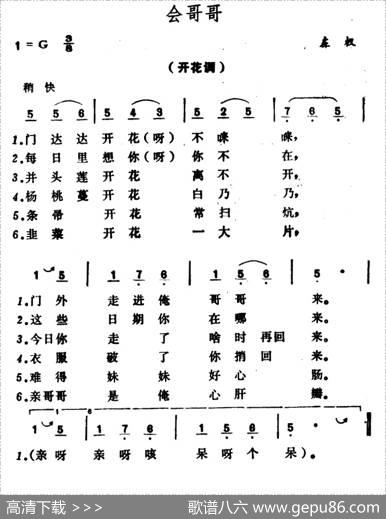 会哥哥
1=G 3/8
左权
（开花调）
稍快
5 5 6 | 5 4 3 | 5 2 5 | 7 6 5 |
1.门 达 达 开 花（呀） 不 咪 咪，
2.每 日 里 想 你（呀） 你 不 在，
3.并 头 莲 开 花 离 不 开，
4.杨 桃 蔓 开 花 白 乃 乃，
5.条 帚 开 花 常 扫 炕，
6.韭 菜 开 花 一 大 片，
1 5 | 1 7 6 | 1 5 6 | 5 · |
1.门 外 走 进 俺 哥 哥 来。
2.这 些 日 期 你 在 哪 来。
3.今日 你 走 了 啥 时 再 回 来。
4.衣 服 破 了 你 捎 回 来。
5.难 得 妹 妹 好 心 肠。
6.亲哥 哥 是 俺 心 肝 瓣。
1—6
1 5 | 1 7 6 | 1 5 6 | 5 · ‖
1.（亲 呀 亲 呀 咳 呆 呀 个 呆）。
高清下载 >>> 歌谱八六 www.gepu86.com